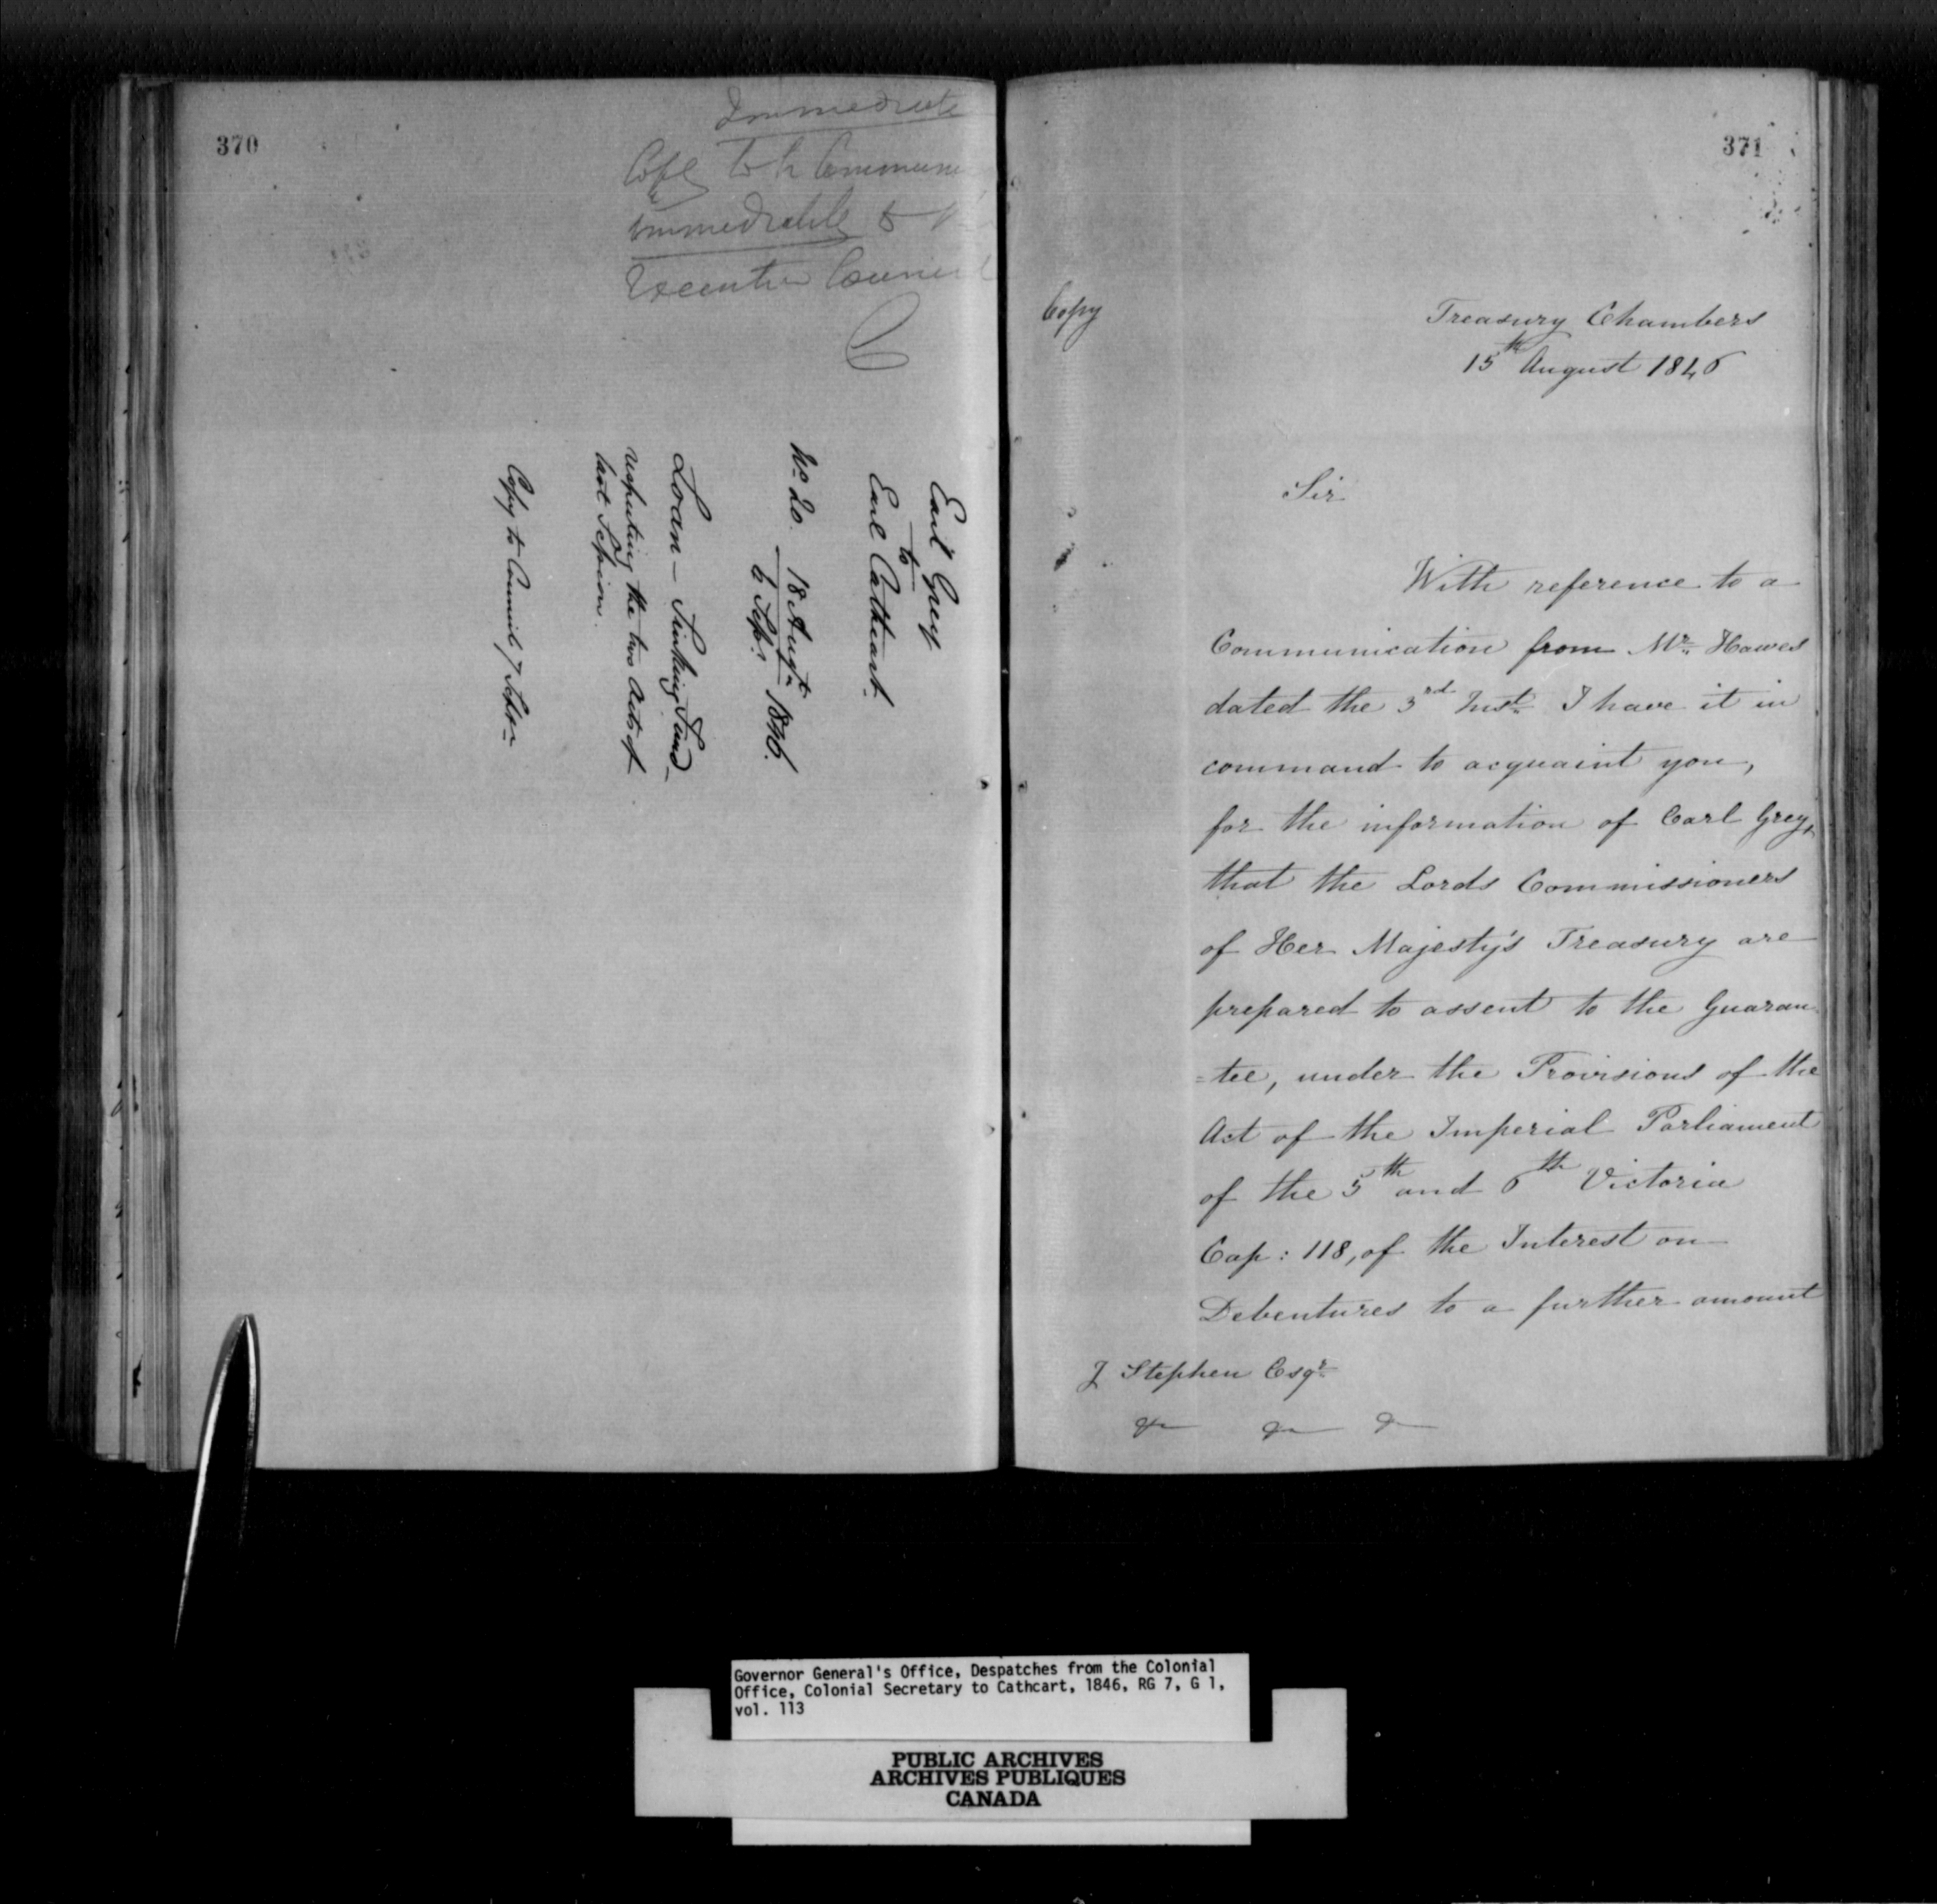 370
Immediate
Copy to be Commun
immediately to
Executive Council
C
Earl Grey
to
Earl Cathcart.
No. 20. 18 Augt. 1846.
6 Sepr.
Loan – Sinking Fund –
respecting the two Acts of
last Session.
Copy to Council 7 Septr.
371
Copy
Treasury Chambers
15th August 1846
Sir
With reference to a
Communication from Mr. Hawes
dated the 3rd Inst. I have it in
command to acquaint you,
for the information of Earl Grey,
that the Lords Commissioners
of Her Majesty's Treasury are
prepared to assent to the Guaran-
=tee, under the Provisions of the
Act of the Imperial Parliament
of the 5th and 6th Victoria
Cap: 118, of the Interest on
Debentures to a further amount
J Stephen Esqr.
&c &c &c
Governor General's Office, Despatches from the Colonial
Office, Colonial Secretary to Cathcart, 1846, RG 7, G 1,
vol. 113
PUBLIC ARCHIVES
ARCHIVES PUBLIQUES
CANADA